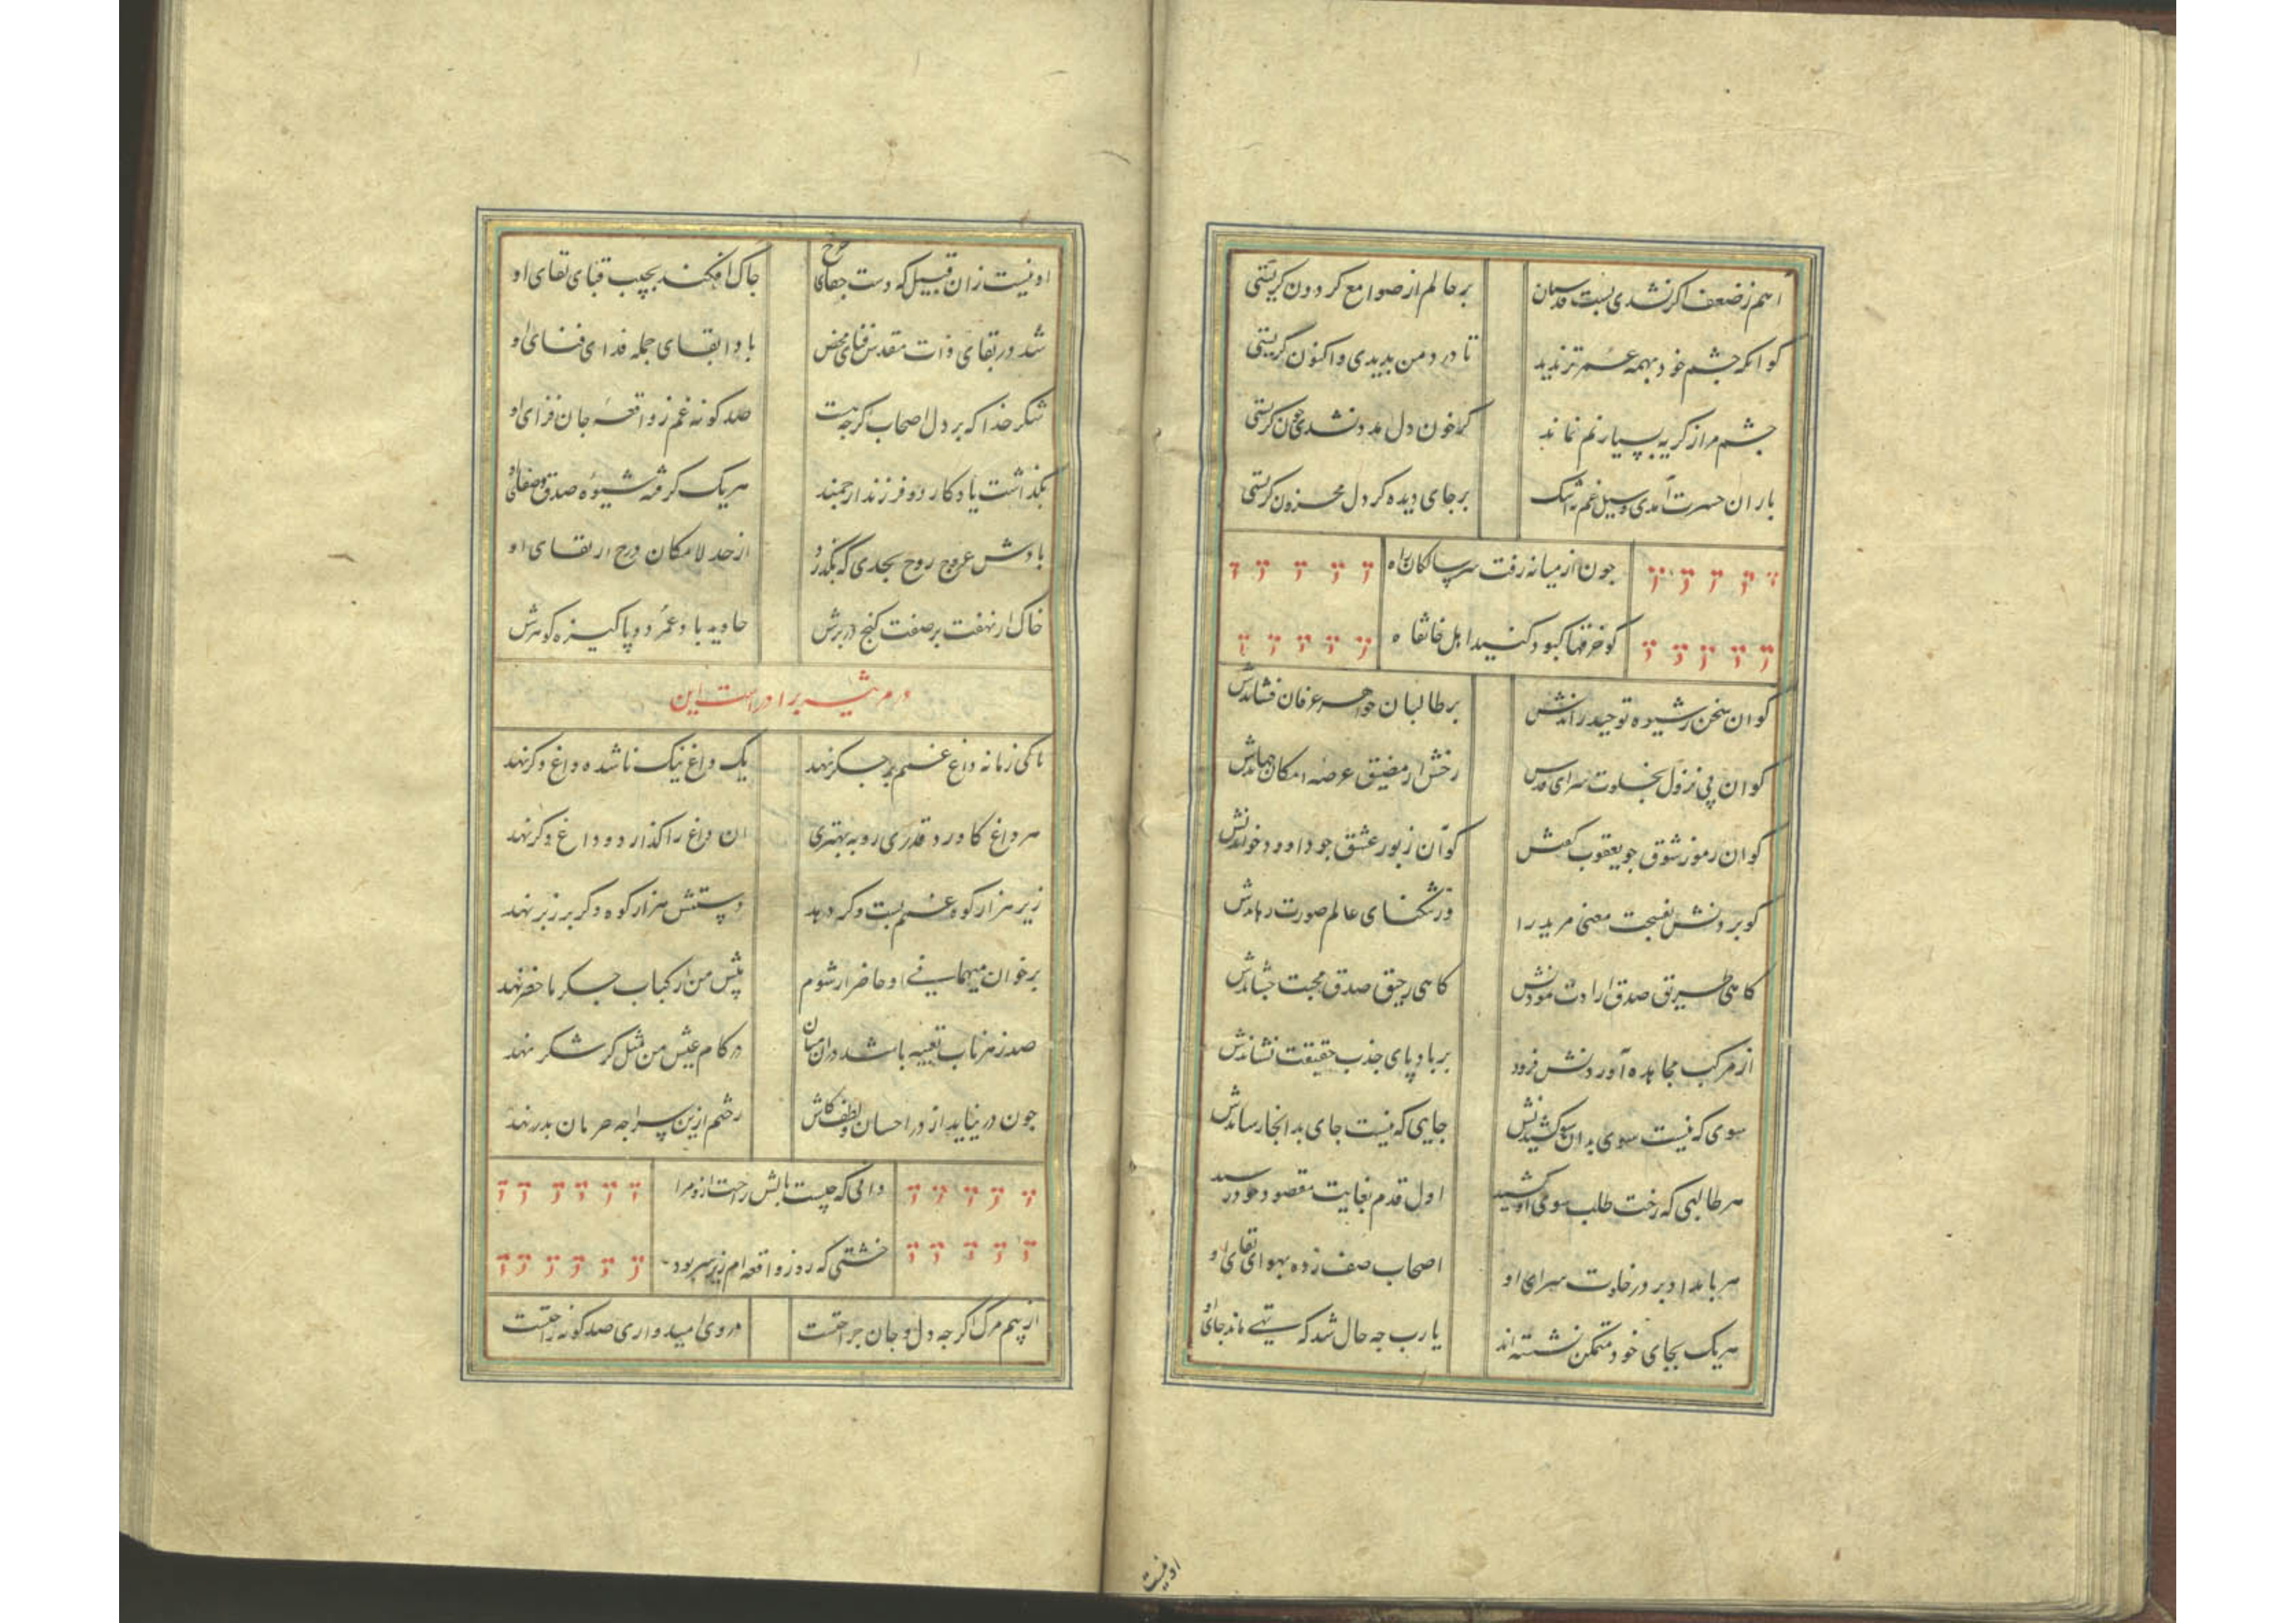 اهم ز ضعف اکر نشدی بست قدسیان
بر حالم از صوامع کردون کریستی
کو انکه جشم خود بهمه عمر تر ندید
تا درد من بدیدی و اکنون کریستی
جشم مرا ز کریه بسیار نم نماند
کر خون دل مدد نشدی جون کریستی
باران حسرت آمدی و سیل غم نه اشک
بر جای دیده کر دل محزون کریستی
جون از میانه رفت سر سالکان راه
کو خرقها کبود کنید اهل خانقاه
کو ان سخن ز شیوه توحید راندنش
بر طالبان جواهر عرفان فشاندنش
کو ان پی نزول بخلوت سرای قدس
رخش از مضیق عرصه امکان جهاندنش
کو ان رموز شوق جو یعقوب کفتنش
کو آن زبور عشق جو داوود خواندنش
کو بردنش بفسحت معنی مرید را
وز تنکنای عالم صورت رهاندنش
کاهی طریق صدق ارادت نمودنش
کاهی رحیق صدق محبت جشاندنش
از مرکب مجاهده آوردنش فرود
بر باد پای جذب حقیقت نشاندنش
سوی که نیست سوی بدان سو کشیدنش
جایی که نیست جای بد انجا رساندنش
هر طالبی که رخت طلب سوی او کشید
اول قدم بغایت مقصود خود رسید
هر بامداد بر در خلوت سرای او
اصحاب صف زده بهوای لقای او
هر یک بجای خود متمکن نشسته اند
یا رب جه حال شد که تهی ماند جای او
او نیست
او نیست زان قبیل که دست جفای جرخ
جاک افکند بجیب قبای بقای او
شد در بقای ذات مقدس فنای محض
بادا بقای جمله فدای فنای او
شکر خدا که بر دل اصحاب کرجه هست
صد کونه غم ز واقعه جان فزای او
بکذاشت یادکار دو فرزند ارجمند
هر یک کرفته شیوه صدق و صفای او
بادش عروج روح بحدی که بکذرد
از حد لامکان درج ارتقای او
خاک ار نهفت بر صفت کنج در برش
جاوید باد عمر دو پاکیزه کوهرش
در مرثیه برادر است این
تا کی زمانه داغ غمم بر جکر نهد
یک داغ نیک ناشده داغ دکر نهد
هر داغ کاورد قدری رو به بهتری
ان داغ را کذارد و داغ دکر نهد
زیر هزار کوه غمم بست و کر دهد
دستش هزار کوه دکر بر زبر نهد
بر خوان میهمانی او حاضر ار شوم
پیش من از کباب جکر ما حضر نهد
صد زهر ناب تعبیه باشد در ان میان
در کام عیش من مثل کر شکر نهد
جون در نیاید از در احسان و لطف کاش
رختم ازین سراجه حرمان بدر نهد
دانی که جیست بالش راحت ازو مرا
خشتی که روز واقعه ام زیر سر بود
از بیم مرک اکر جه دل و جان
در وی امیدواری صد کونه راحتست